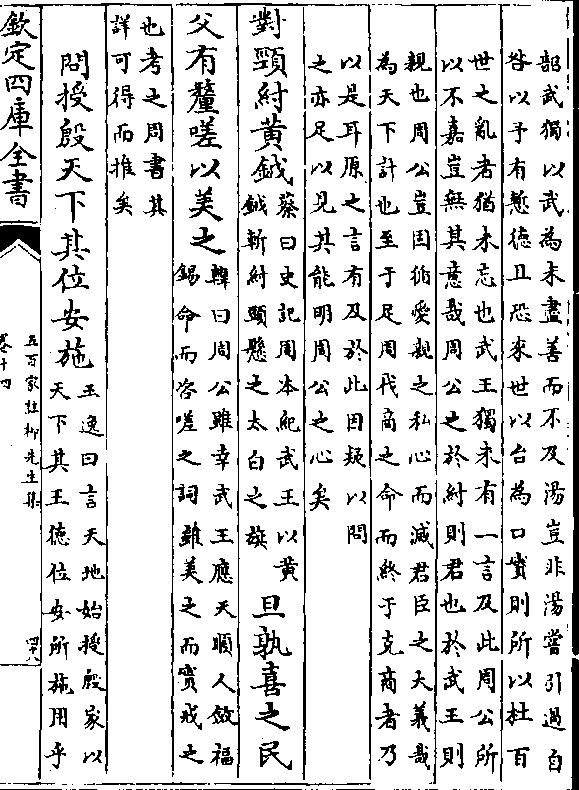 韶武獨以武為未盡善而不及湯豈非湯嘗引過自
咎以予有慙德且恐來世以台為口實則所以杜百
世之亂者猶未忘也武王獨未有一言及此周公所
以不嘉豈無其意哉周公之於紂則君也於武王則
親也周公豈固徇愛親之私心而滅君臣之大義哉
為天下計也至于足周伐商之命而終于克商者乃
以是耳原之言有及於此因疑以問
之亦足以見其能明周公之心矣
對頸紂黃鉞
蔡曰史記周本紀武王以黃
鉞斬紂頭懸之太白之旗
旦孰喜之民
父有釐嗟以美之
韓曰周公雖幸武王應天順人斂福
錫命而咨嗟之詞雖美之而實戒之
也考之周書其
詳可得而推矣
問授殷天下其位安施
王逸曰言天地始授殷家以
天下其王德位安所施用乎
欽定四庫全書
五百家註柳先生集
卷十四
四八